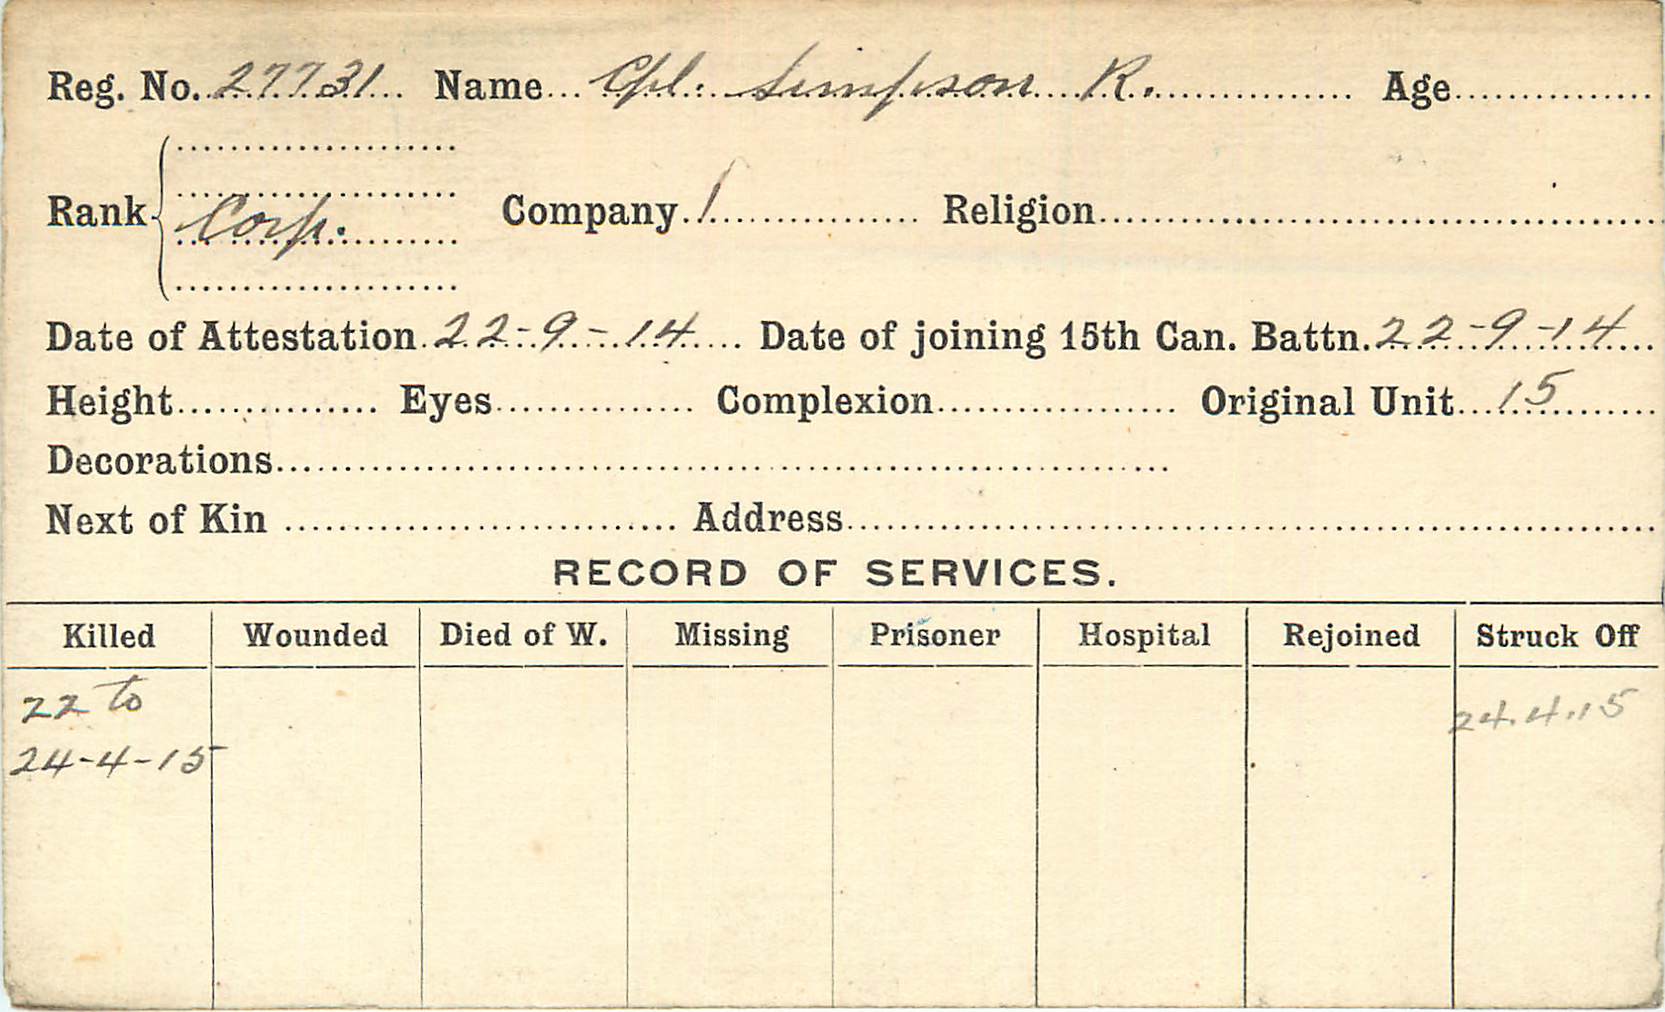 Reg. No. 27731 Name Cpl. Simpson R. Age
Rank Corp. Company 1 Religion
Date of Attestation 22-9-14 Date of joining 15th Can. Battn. 22-9-14
Height Eyes Complexion Original Unit 15
Decorations
Next of Kin Address
RECORD OF SERVICES.
Killed Wounded Died of W. Missing Prisoner Hospital Rejoined Struck Off
22 to 24.4.15
24-4-15